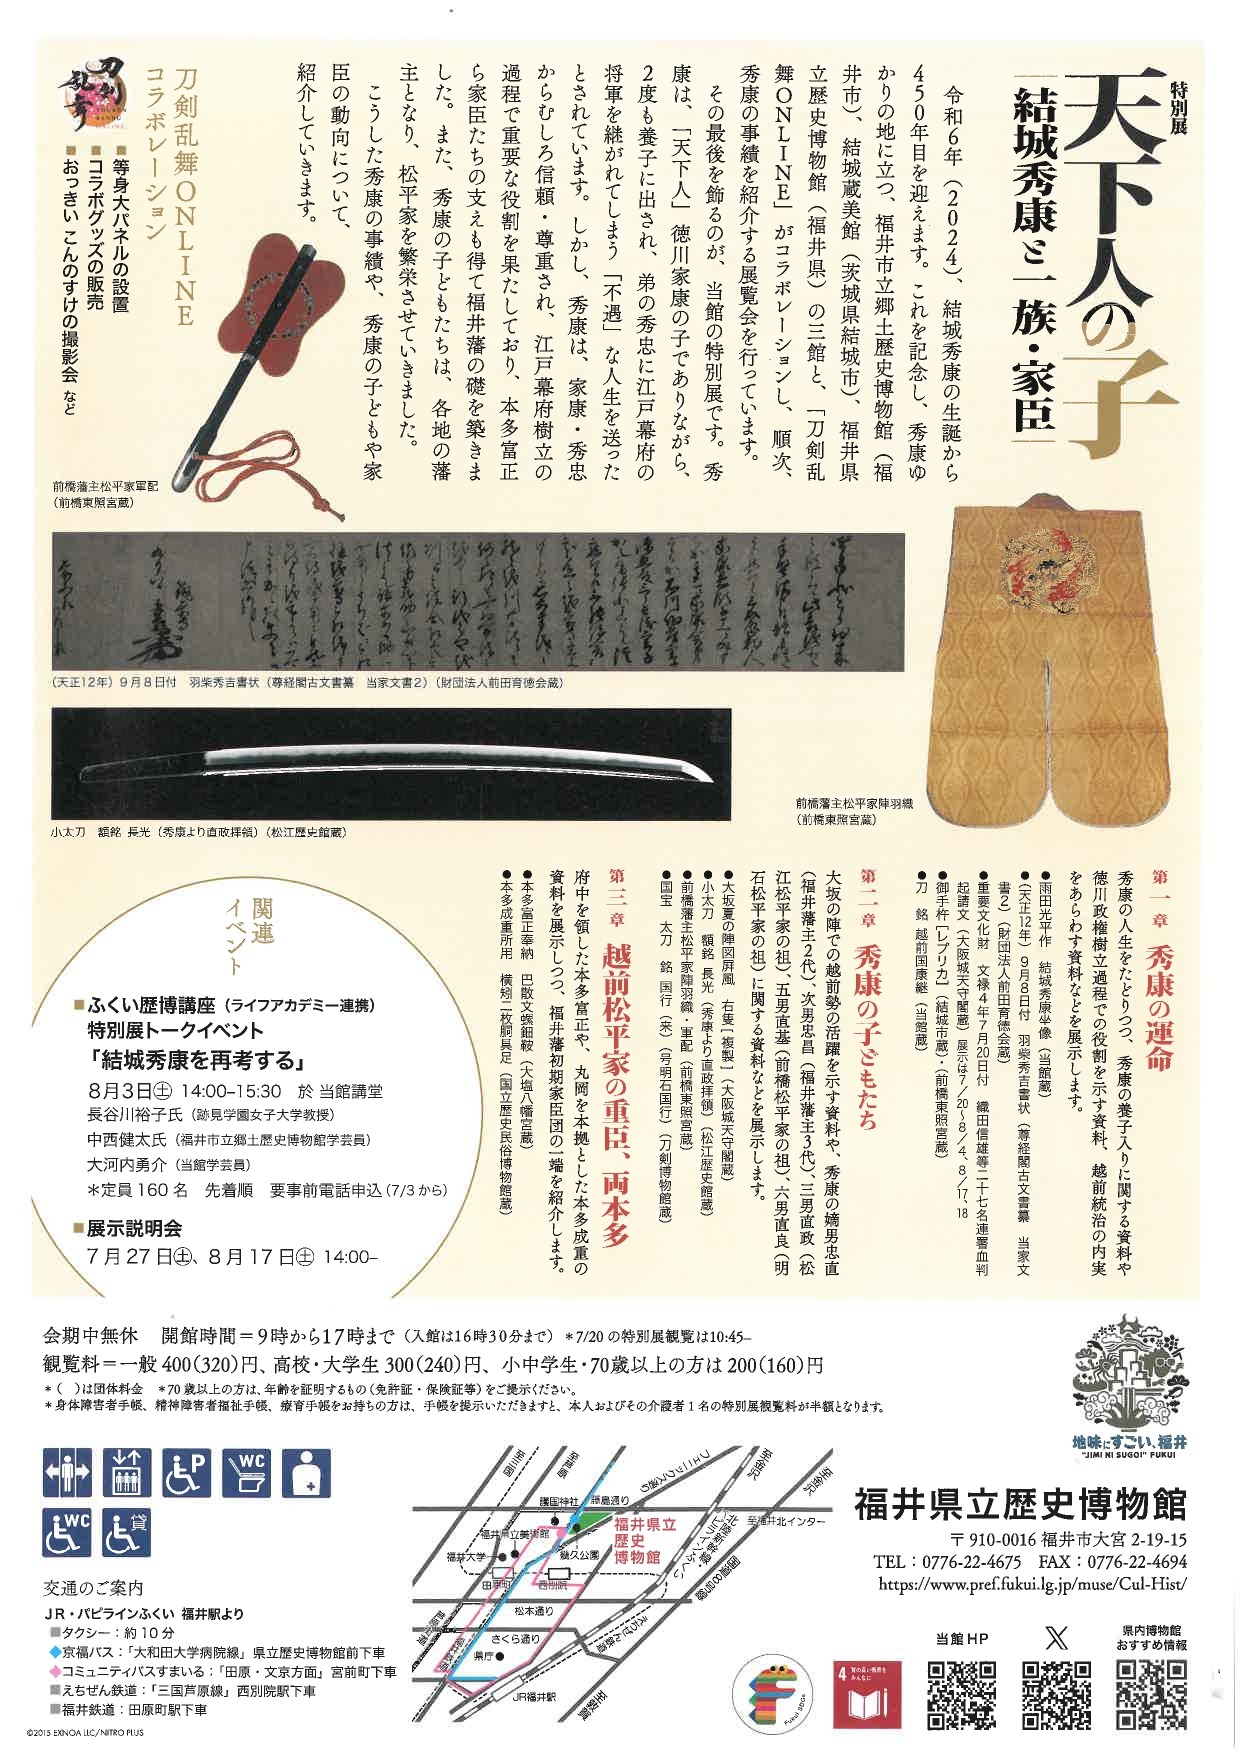 特別展
天下人の子
結城秀康と一族・家臣
令和6年（2024）、結城秀康の生誕から
450年目を迎えます。これを記念し、秀康ゆ
かりの地に立つ、福井市立郷土歴史博物館（福
井市）、結城蔵美館（茨城県結城市）、福井県
立歴史博物館（福井県）の三館と、「刀剣乱
舞ONLINE」がコラボレーションし、順次、
秀康の事績を紹介する展覧会を行っています。
その最後を飾るのが、当館の特別展です。秀
康は、「天下人」徳川家康の子でありながら、
2度も養子に出され、弟の秀忠に江戸幕府の
将軍を継がれてしまう「不遇」な人生を送った
とされています。しかし、秀康は、家康・秀忠
からむしろ信頼・尊重され、江戸幕府樹立の
過程で重要な役割を果たしており、本多富正
ら家臣たちの支えも得て福井藩の礎を築きま
した。また、秀康の子どもたちは、各地の藩
主となり、松平家を繁栄させていきました。
こうした秀康の事績や、秀康の子どもや家
臣の動向について、
紹介していきます。
刀剣乱舞ONLINE
コラボレーション
■等身大パネルの設置
■コラボグッズの販売
■おっきい こんのすけの撮影会 など
刀剣乱舞
前橋藩主松平家軍配
（前橋東照宮蔵）
（天正12年）9月8日付　羽柴秀吉書状（尊経閣古文書纂　当家文書2）（財団法人前田育徳会蔵）
小太刀　額銘 長光（秀康より直政拝領）（松江歴史館蔵）
前橋藩主松平家陣羽織
（前橋東照宮蔵）
第一章 秀康の運命
秀康の人生をたどりつつ、秀康の養子入りに関する資料や
徳川政権樹立過程での役割を示す資料、越前統治の内実
をあらわす資料などを展示します。
●雨田光平作　結城秀康坐像（当館蔵）
●（天正12年）9月8日付　羽柴秀吉書状（尊経閣古文書纂　当家文
書2）（財団法人前田育徳会蔵）
●重要文化財　文禄4年7月20日付　織田信雄等二十七名連署血判
起請文（大阪城天守閣蔵）展示は7／20～8／4、8／17、18
●御手杵［レプリカ］（結城市蔵）・（前橋東照宮蔵）
●刀　銘 越前国康継（当館蔵）
第二章 秀康の子どもたち
大坂の陣での越前勢の活躍を示す資料や、秀康の嫡男忠直
（福井藩主2代）、次男忠昌（福井藩主3代）、三男直政（松
江松平家の祖）、五男直基（前橋松平家の祖）、六男直良（明
石松平家の祖）に関する資料などを展示します。
●大坂夏の陣図屏風　右隻［複製］（大阪城天守閣蔵）
●小太刀　額銘 長光（秀康より直政拝領）（松江歴史館蔵）
●前橋藩主松平家陣羽織・軍配（前橋東照宮蔵）
●国宝　太刀　銘 国行（来）（号明石国行）（刀剣博物館蔵）
第三章 越前松平家の重臣、両本多
府中を領した本多富正や、丸岡を本拠とした本多成重の
資料を展示しつつ、福井藩初期家臣団の一端を紹介します。
●本多富正奉納　巴散文螺鈿鞍（大塩八幡宮蔵）
●本多成重所用　横矧二枚胴具足（国立歴史民俗博物館蔵）
関連
イベント
■ふくい歴博講座（ライフアカデミー連携）
特別展トークイベント
「結城秀康を再考する」
8月3日㊏ 14:00–15:30　於 当館講堂
長谷川裕子氏（跡見学園女子大学教授）
中西健太氏（福井市立郷土歴史博物館学芸員）
大河内勇介（当館学芸員）
＊定員160名　先着順　要事前電話申込（7/3から）
■展示説明会
7月27日㊏、8月17日㊏ 14:00–
会期中無休　開館時間＝9時から17時まで（入館は16時30分まで）＊7/20の特別展観覧は10:45–
観覧料＝一般400（320）円、高校・大学生300（240）円、小中学生・70歳以上の方は200（160）円
＊（　）は団体料金　＊70歳以上の方は、年齢を証明するもの（免許証・保険証等）をご提示ください。
＊身体障害者手帳、精神障害者福祉手帳、療育手帳をお持ちの方は、手帳を提示いただきますと、本人およびその介護者1名の特別展観覧料が半額となります。
地味にすごい、福井
"JIMI NI SUGOI" FUKUI
P
WC
WC
貸
交通のご案内
JR・ハピラインふくい 福井駅より
■タクシー：約10分
◆京福バス：「大和田大学病院線」県立歴史博物館前下車
◆コミュニティバスすまいる：「田原・文京方面」宮前町下車
■えちぜん鉄道：「三国芦原線」西別院駅下車
■福井鉄道：田原町駅下車
©2015 EXNOA LLC/NITRO PLUS
至三国
至芦原
フェニックス通り
至金沢
至金沢
護国神社
藤島通り
至福井北インター
福井県立美術館
福井県立
歴史
博物館
福井大学
幾久公園
田原町
西別院
北陸新幹線・
ハピラインふくい
国道8号線
松本通り
さくら通り
えちぜん鉄道
県庁
JR福井駅
至敦賀
福井県立歴史博物館
〒910-0016 福井市大宮2-19-15
TEL：0776-22-4675　FAX：0776-22-4694
https://www.pref.fukui.lg.jp/muse/Cul-Hist/
当館HP
X
県内博物館
おすすめ情報
Fukui SDGs
4 質の高い教育を
みんなに